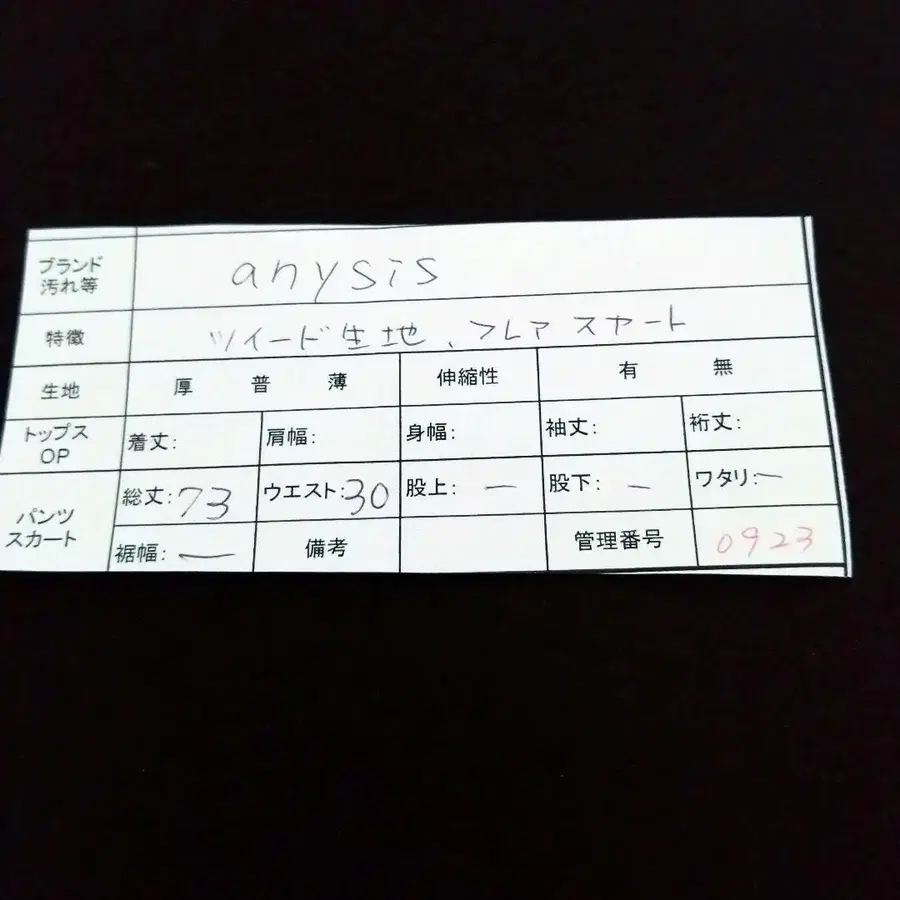 ブランド
汚れ等
anysis
特徴
ツイード生地、フレアスカート
生地 厚 普 薄 伸縮性 有 無
トップス
OP
着丈: 肩幅: 身幅: 袖丈: 裄丈:
パンツ
スカート
総丈:73 ウエスト:30 股上:ー 股下:ー ワタリ:ー
裾幅:ー 備考 管理番号 0923